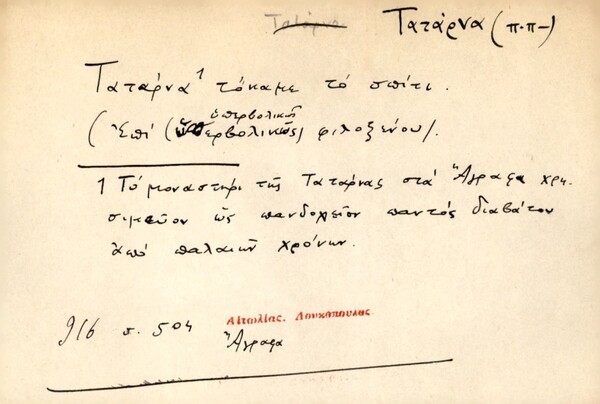 Τατάρνα Τατάρνα (π.π-)
Τατάρνα¹ τόκαμε τό σπίτι.
ὑπερβολικῆς
(Ἐπί (ὑπερβολικῶς) φιλοξένου).
1 Τό μοναστήρι τῆς Τατάρνας στά Ἄγραφα χρη-
σιμεῦον ὡς πανδοχεῖον παντός διαβάτου
ἀπό παλαιῶν χρόνων.
916 σ. 504 Αἰτωλίας. Λουκόπουλος
Ἄγραφα